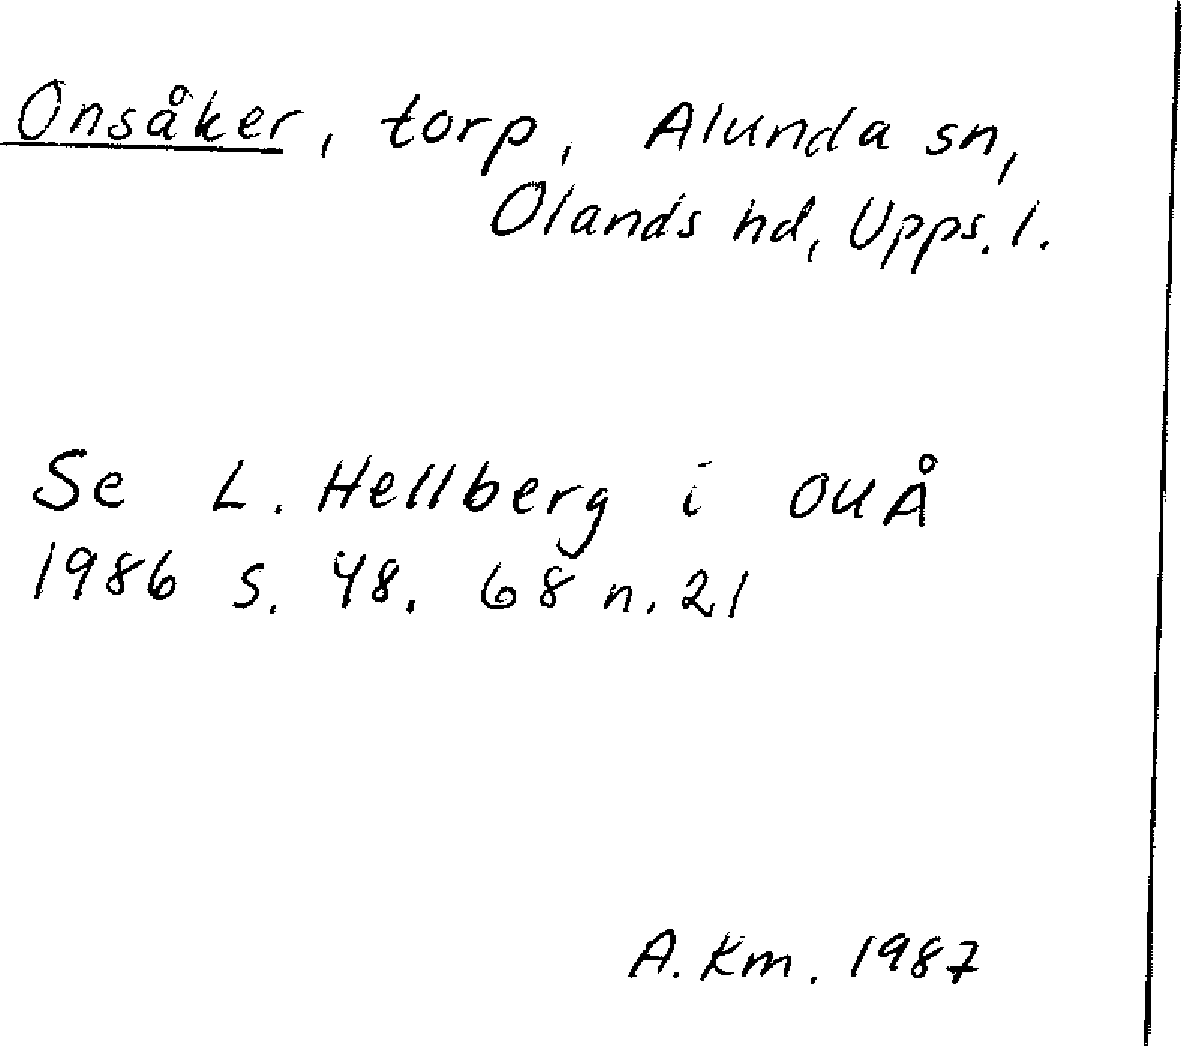 Onsåker, torp, Alunda sn,
Olands hd, Upps. l.
Se L. Hellberg i OUÅ
1986 s. 48. 68 n. 21
A. Km. 1987